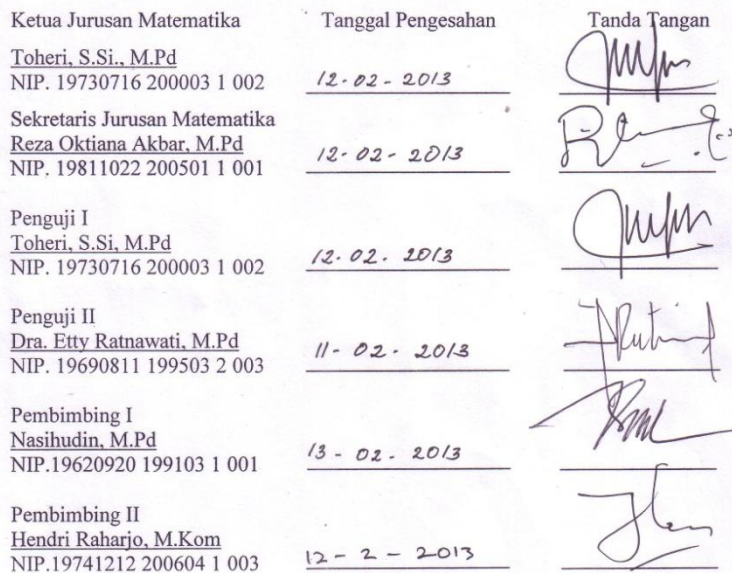 Ketua Jurusan Matematika Tanggal Pengesahan Tanda Tangan
Toheri, S.Si., M.Pd
NIP. 19730716 200003 1 002 12-02-2013
Sekretaris Jurusan Matematika
Reza Oktiana Akbar, M.Pd
NIP. 19811022 200501 1 001 12-02-2013
Penguji I
Toheri, S.Si, M.Pd
NIP. 19730716 200003 1 002 12.02.2013
Penguji II
Dra. Etty Ratnawati, M.Pd
NIP. 19690811 199503 2 003 11-02-2013
Pembimbing I
Nasihudin, M.Pd
NIP.19620920 199103 1 001 13-02-2013
Pembimbing II
Hendri Raharjo, M.Kom
NIP.19741212 200604 1 003 12-2-2013